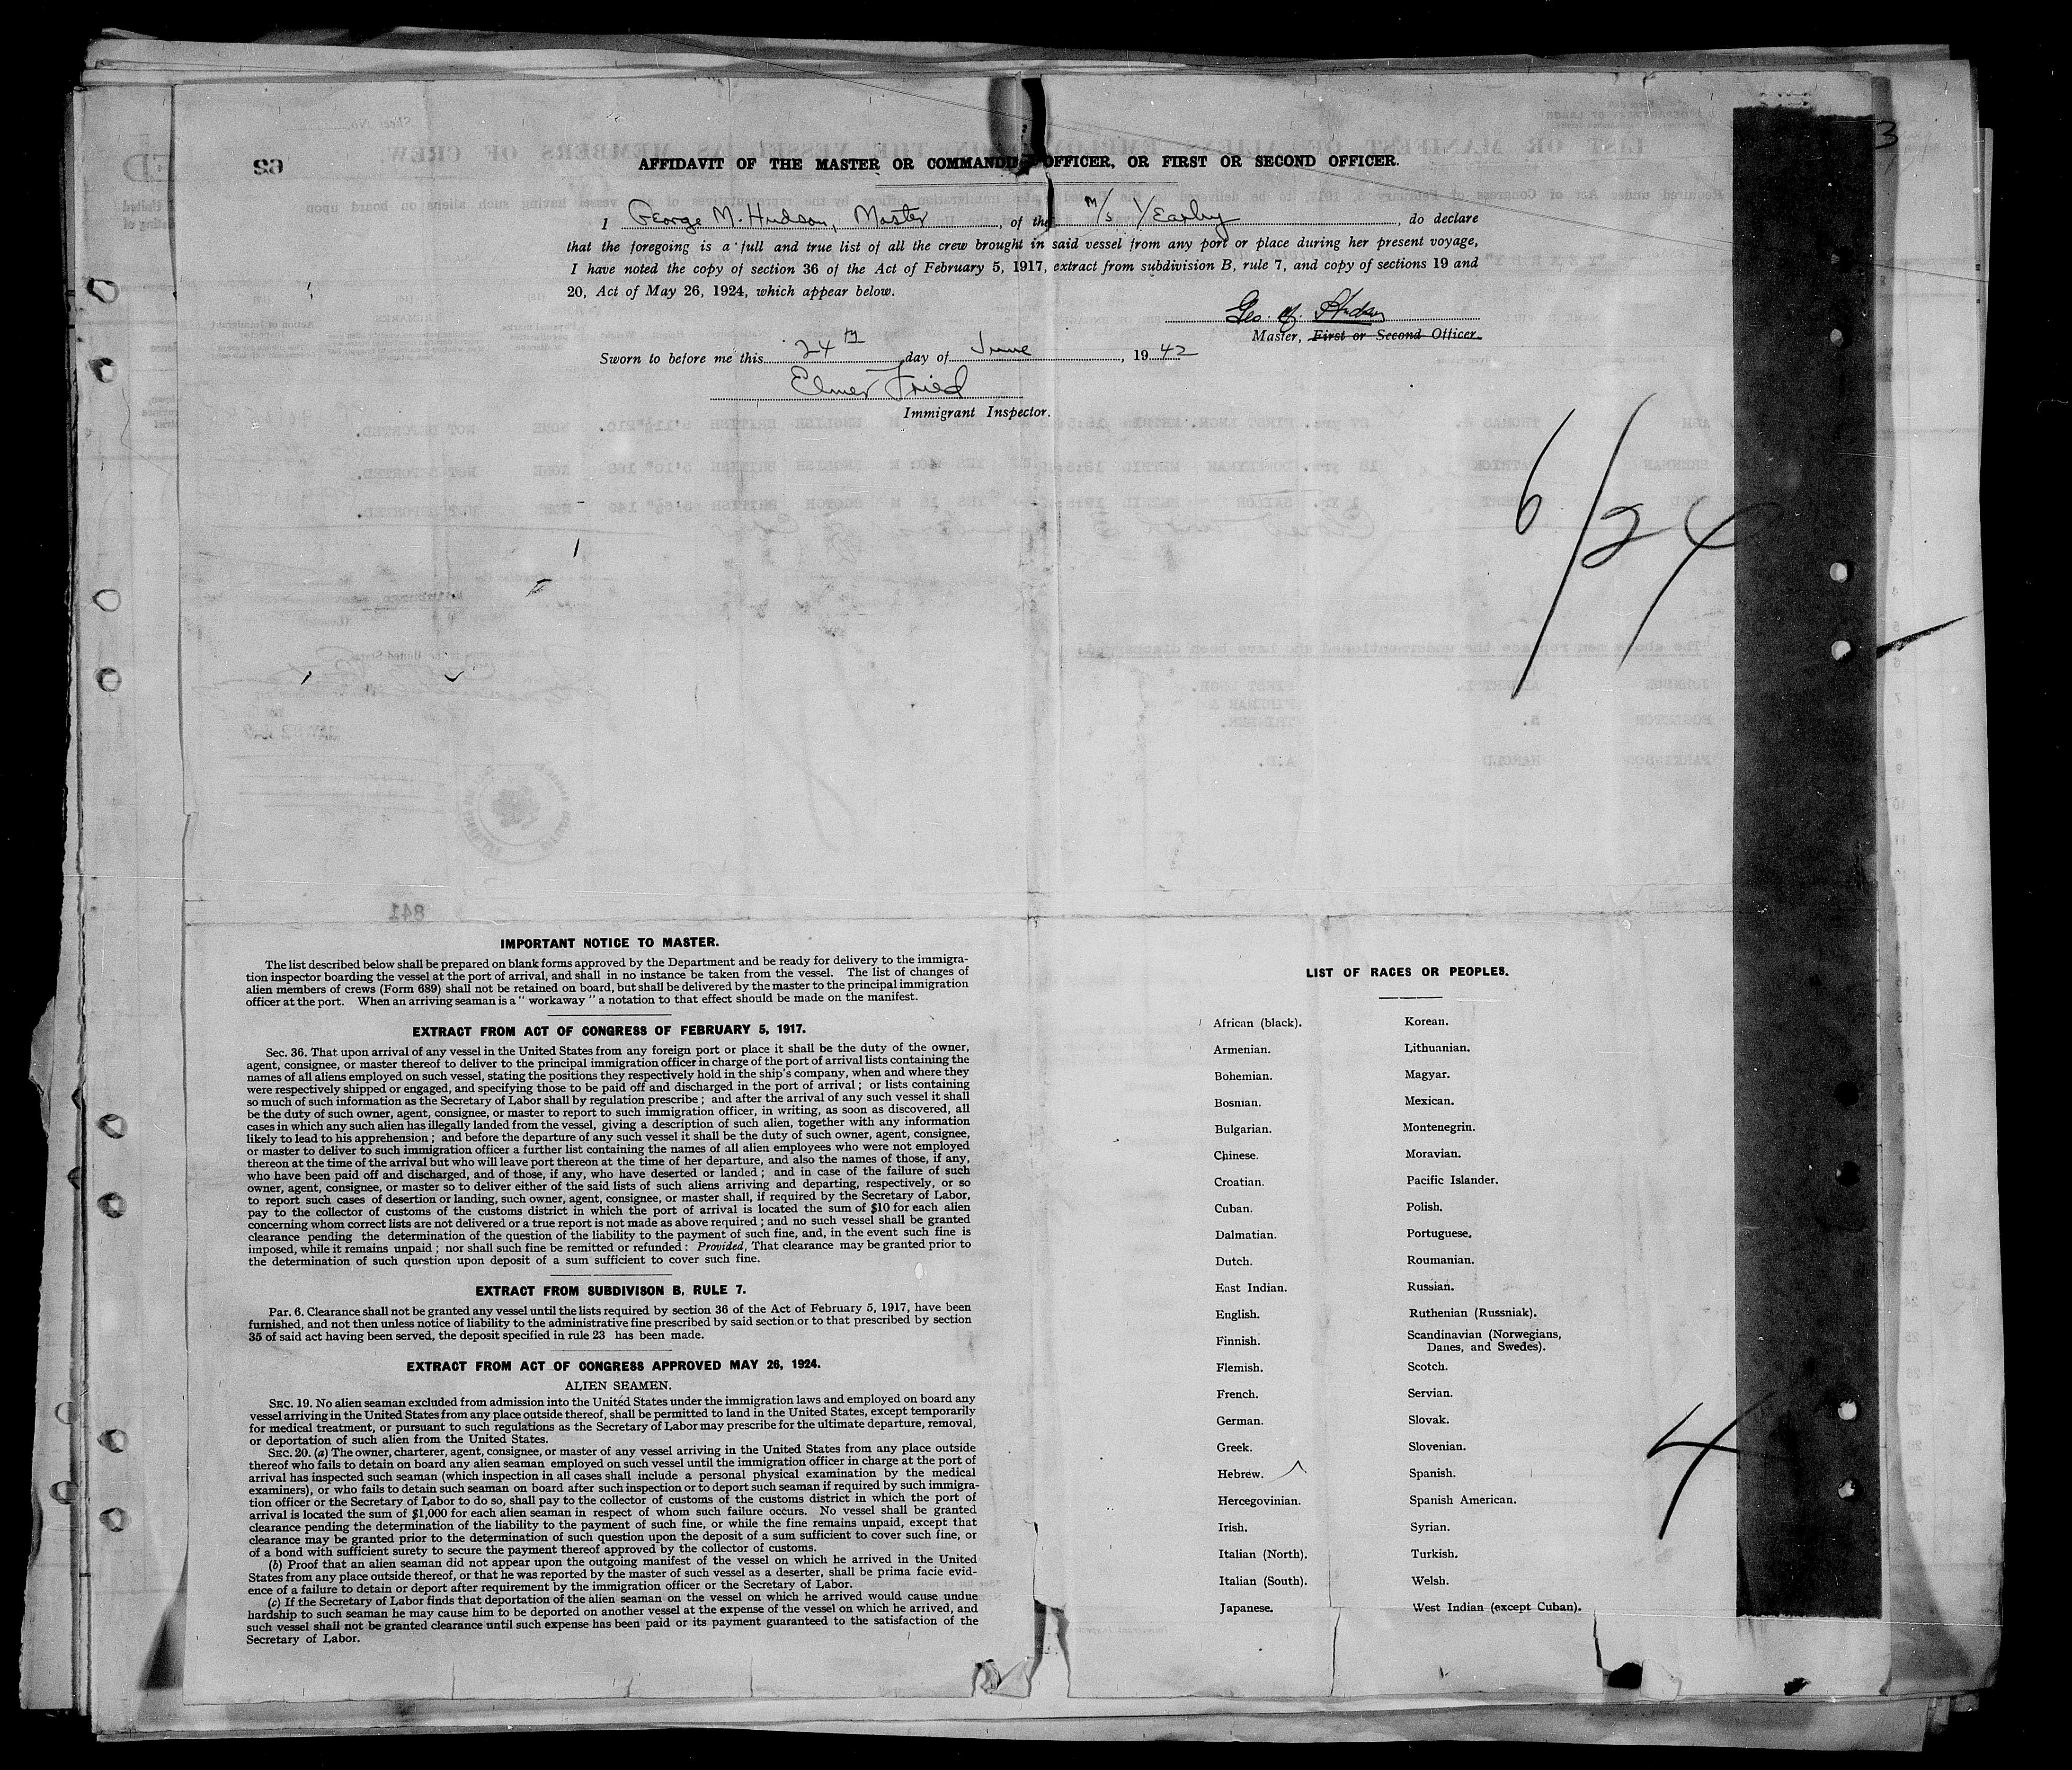 AFFIDAVIT OF THE MASTER OR COMMANDING OFFICER, OR FIRST OR SECOND OFFICER.
I George M. Hudson, Master, of the m/s Yearby, do declare
that the foregoing is a full and true list of all the crew brought in said vessel from any port or place during her present voyage,
I have noted the copy of section 36 of the Act of February 5, 1917, extract from subdivision B, rule 7, and copy of sections 19 and
20, Act of May 26, 1924, which appear below.
Geo. M. Hudson
Master, First or Second Officer.
Sworn to before me this 24th day of June, 1942
Elmer Fried
Immigrant Inspector.
6/24
3
IMPORTANT NOTICE TO MASTER.
The list described below shall be prepared on blank forms approved by the Department and be ready for delivery to the immigra-
tion inspector boarding the vessel at the port of arrival, and shall in no instance be taken from the vessel. The list of changes of
alien members of crews (Form 689) shall not be retained on board, but shall be delivered by the master to the principal immigration
officer at the port. When an arriving seaman is a " workaway " a notation to that effect should be made on the manifest.
EXTRACT FROM ACT OF CONGRESS OF FEBRUARY 5, 1917.
Sec. 36. That upon arrival of any vessel in the United States from any foreign port or place it shall be the duty of the owner,
agent, consignee, or master thereof to deliver to the principal immigration officer in charge of the port of arrival lists containing the
names of all aliens employed on such vessel, stating the positions they respectively hold in the ship's company, when and where they
were respectively shipped or engaged, and specifying those to be paid off and discharged in the port of arrival ; or lists containing
so much of such information as the Secretary of Labor shall by regulation prescribe ; and after the arrival of any such vessel it shall
be the duty of such owner, agent, consignee, or master to report to such immigration officer, in writing, as soon as discovered, all
cases in which any such alien has illegally landed from the vessel, giving a description of such alien, together with any information
likely to lead to his apprehension ; and before the departure of any such vessel it shall be the duty of such owner, agent, consignee,
or master to deliver to such immigration officer a further list containing the names of all alien employees who were not employed
thereon at the time of the arrival but who will leave port thereon at the time of her departure, and also the names of those, if any,
who have been paid off and discharged, and of those, if any, who have deserted or landed ; and in case of the failure of such
owner, agent, consignee, or master so to deliver either of the said lists of such aliens arriving and departing, respectively, or so
to report such cases of desertion or landing, such owner, agent, consignee, or master shall, if required by the Secretary of Labor,
pay to the collector of customs of the customs district in which the port of arrival is located the sum of $10 for each alien
concerning whom correct lists are not delivered or a true report is not made as above required ; and no such vessel shall be granted
clearance pending the determination of the question of the liability to the payment of such fine, and, in the event such fine is
imposed, while it remains unpaid ; nor shall such fine be remitted or refunded : Provided, That clearance may be granted prior to
the determination of such question upon deposit of a sum sufficient to cover such fine.
EXTRACT FROM SUBDIVISON B, RULE 7.
Par. 6. Clearance shall not be granted any vessel until the lists required by section 36 of the Act of February 5, 1917, have been
furnished, and not then unless notice of liability to the administrative fine prescribed by said section or to that prescribed by section
35 of said act having been served, the deposit specified in rule 23 has been made.
EXTRACT FROM ACT OF CONGRESS APPROVED MAY 26, 1924.
ALIEN SEAMEN.
SEC. 19. No alien seaman excluded from admission into the United States under the immigration laws and employed on board any
vessel arriving in the United States from any place outside thereof, shall be permitted to land in the United States, except temporarily
for medical treatment, or pursuant to such regulations as the Secretary of Labor may prescribe for the ultimate departure, removal,
or deportation of such alien from the United States.
SEC. 20. (a) The owner, charterer, agent, consignee, or master of any vessel arriving in the United States from any place outside
thereof who fails to detain on board any alien seaman employed on such vessel until the immigration officer in charge at the port of
arrival has inspected such seaman (which inspection in all cases shall include a personal physical examination by the medical
examiners), or who fails to detain such seaman on board after such inspection or to deport such seaman if required by such immigra-
tion officer or the Secretary of Labor to do so, shall pay to the collector of customs of the customs district in which the port of
arrival is located the sum of $1,000 for each alien seaman in respect of whom such failure occurs. No vessel shall be granted
clearance pending the determination of the liability to the payment of such fine, or while the fine remains unpaid, except that
clearance may be granted prior to the determination of such question upon the deposit of a sum sufficient to cover such fine, or
of a bond with sufficient surety to secure the payment thereof approved by the collector of customs.
(b) Proof that an alien seaman did not appear upon the outgoing manifest of the vessel on which he arrived in the United
States from any place outside thereof, or that he was reported by the master of such vessel as a deserter, shall be prima facie evid-
ence of a failure to detain or deport after requirement by the immigration officer or the Secretary of Labor.
(c) If the Secretary of Labor finds that deportation of the alien seaman on the vessel on which he arrived would cause undue
hardship to such seaman he may cause him to be deported on another vessel at the expense of the vessel on which he arrived, and
such vessel shall not be granted clearance until such expense has been paid or its payment guaranteed to the satisfaction of the
Secretary of Labor.
LIST OF RACES OR PEOPLES.
African (black). Korean.
Armenian. Lithuanian.
Bohemian. Magyar.
Bosnian. Mexican.
Bulgarian. Montenegrin.
Chinese. Moravian.
Croatian. Pacific Islander.
Cuban. Polish.
Dalmatian. Portuguese.
Dutch. Roumanian.
East Indian. Russian.
English. Ruthenian (Russniak).
Finnish. Scandinavian (Norwegians,
Danes, and Swedes).
Flemish. Scotch.
French. Servian.
German. Slovak.
Greek. Slovenian.
Hebrew. Spanish.
Hercegovinian. Spanish American.
Irish. Syrian.
Italian (North). Turkish.
Italian (South). Welsh.
Japanese. West Indian (except Cuban).
4